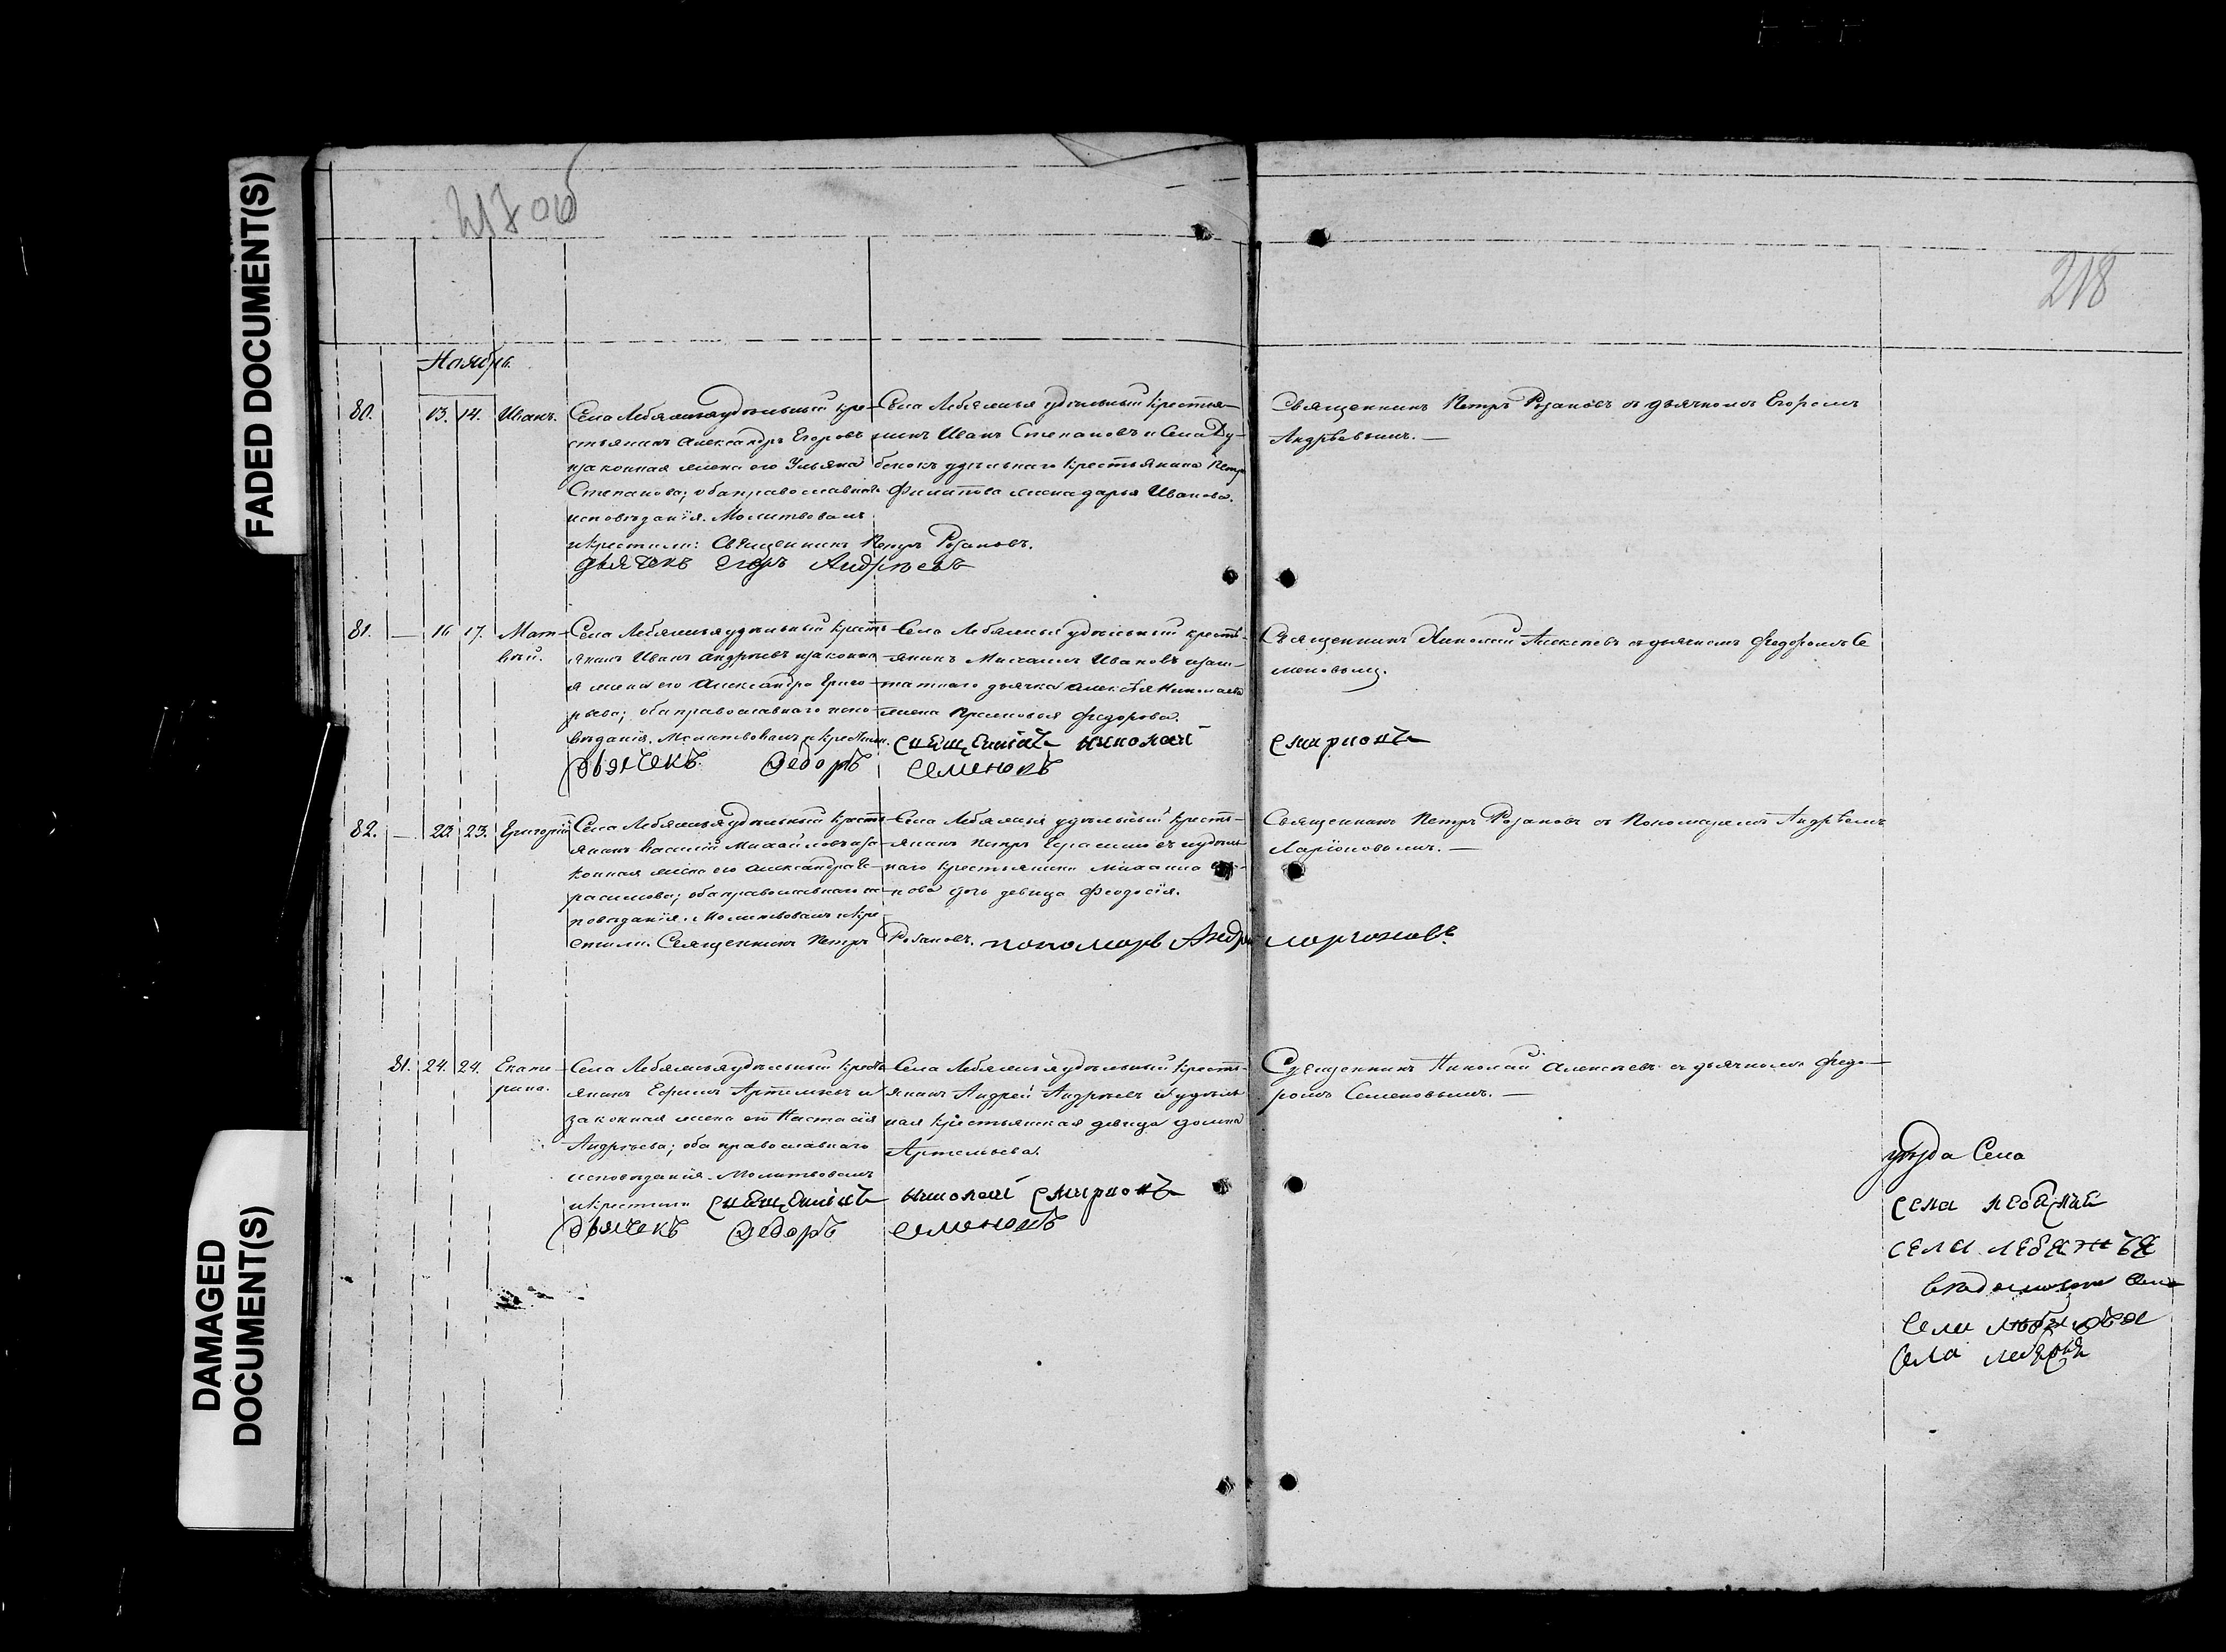 FADED DOCUMENT(S)
DAMAGED DOCUMENT(S)
217 об
218
Ноябрь.
80. 13. 14. Иванъ.
Села Лебяжья удѣльный кре-
стьянинъ Александръ Егоровъ
и законная жена его Ульяна
Степанова; оба православнаго
исповѣданія. Молитвовалъ
и крестили: Священникъ Петръ Розановъ.
Дьячекъ Егоръ Андреевъ
Села Лебяжья удѣльный крестья-
нинъ Иванъ Степановъ и села Ду-
бенокъ удѣльнаго крестьянина Петра
Филипова жена Дарья Иванова.
Священникъ Петръ Розановъ съ дьячкомъ Егоромъ
Андрѣевымъ. —
81. — 16 17. Мат-
вѣй.
Села Лебяжья удѣльный кресть-
янинъ Иванъ Андрѣевъ и законна-
я жена его Александра Григо-
рьева; оба православнаго испо-
вѣданія. Молитвовалъ и крестили.
Села Лебяжья удѣльный кресть-
янинъ Михаилъ Ивановъ и заш-
татнаго дьячка Алексѣя Николаева
жена Федорова.
Священникъ Николай Смирновъ
Дьячекъ Федоръ Семеновъ
Священникъ Николай Алексѣевъ съ дьячкомъ Федоромъ Се
меновымъ.
82. — 22. 23. Григорій
Села Лебяжья удѣльный кресть-
янинъ Василій Михайловъ и за
конная жена его Александра Ге-
расимова; оба православнаго ис-
повѣданія. Молитвовалъ и кре
стили. Священникъ Петръ Розановъ. пономарь Андрей Ларионовъ
Села Лебяжья удѣльный кресть-
янинъ Петръ Герасимовъ и удѣль
наго крестьянина Михаила
нова дочь девица Феодосія.
Священникъ Петръ Розановъ съ Пономаремъ Андрѣемъ
Ларіоновымъ. —
81. 24. 24. Екате-
рина.
Села Лебяжья удѣльный кресть-
янинъ Ефимъ Артемьевъ и
законная жена его Настасія
Андрѣева; оба православнаго
исповѣданія. Молитвовалъ
и крестили Священникъ Николай Смирновъ
Дьячекъ Федоръ Семеновъ
Села Лебяжья удѣльный кресть-
янинъ Андрей Андрѣевъ и удѣль
ная крестьянская девица Домна
Артемьева.
Священникъ Николай Алексѣевъ съ дьячкомъ Федо-
ромъ Семеновымъ. —
Села
села
села Лебяжья
Села
Села